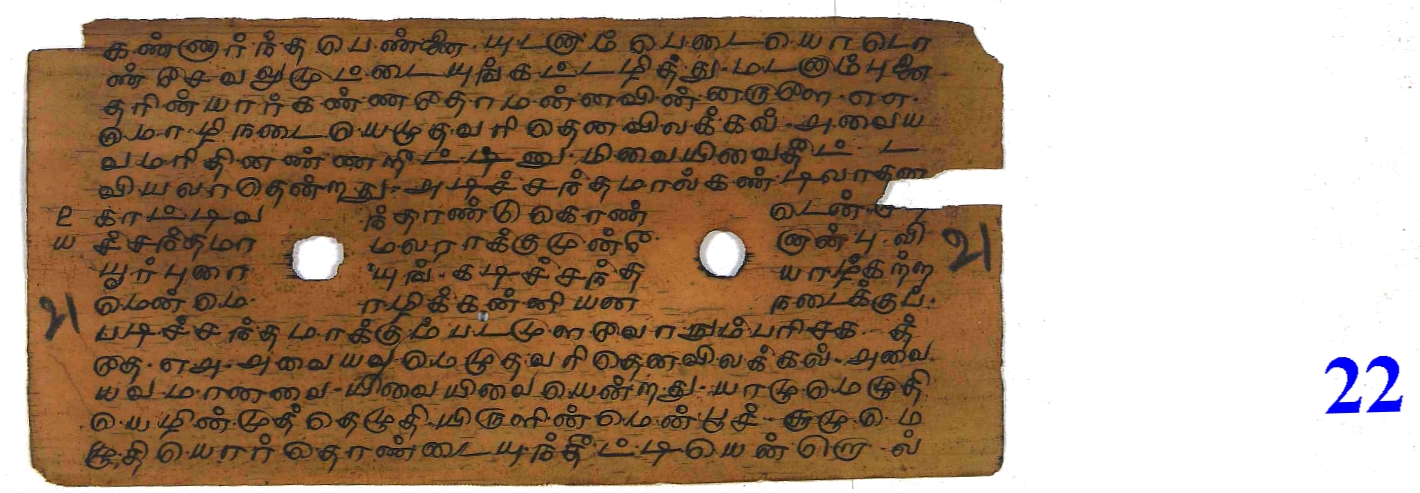 கண்ணார்ந்த பெண்ணை யுடனுமே பெடையொடொ
ண் சேவலுமுட்டையுங்கட்டழித்து மடனும்புனை
தரின்யார்கண்ணதோமன்னவின்னருளே எஎ
மொழிநடையெழுதவரிதெனவிலக்கல் அவைய
வமரிதினண்ணறீட்டினு மிவையிவைதீட்ட
வியவரதென்றது அடிச்சந்தமால்கண்டிலாதன
உ காட்டிவ ந்தாண்டுகொண்
ய ச்சந்தமா மலராக்குமுன் னன்புவி
யூர்புரை யுங் கடிச்சந்த யாழ்கற்ற
மென்மொ ழிக்கன்னியன நடைக்குப்
படிச்சந்தமாக்கும்படமுளவோநும்பரிசக த்
தே எஅ அவையவமெழுதவரிதெனவிலக்கல் அவை
யவமானவை யிவையிவையென்றது யாழுமெழுதி
யெழின்முத்தெழுதி யிருளின்மென்பூச் சூழுமெ
ழுதியொர்தொண்டையுந்தீட்டியென்
22